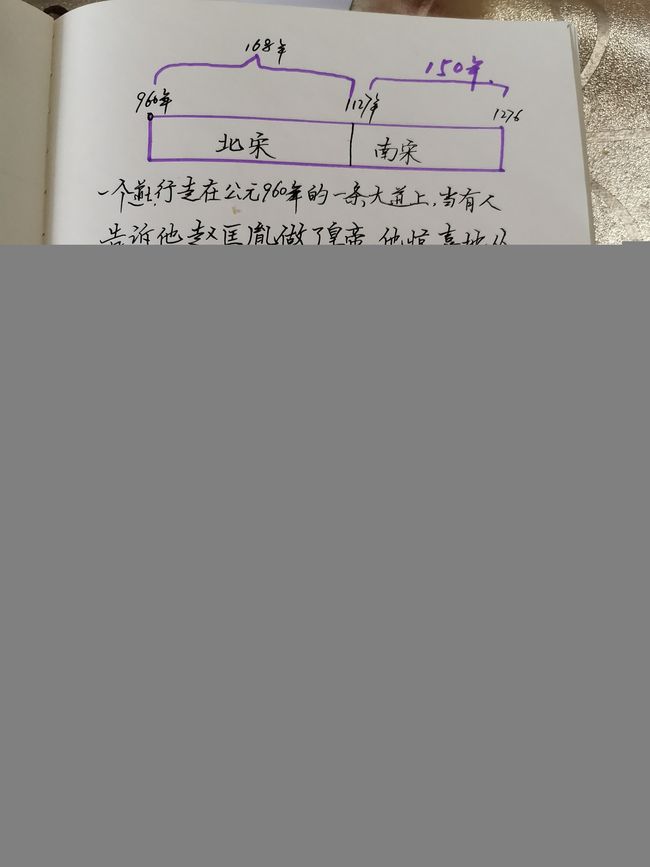 168年
150年
960年
1276
北宋
南宋
一个道士行走在公元960年的一条大道上,当有人
告诉他赵匡胤做了皇帝